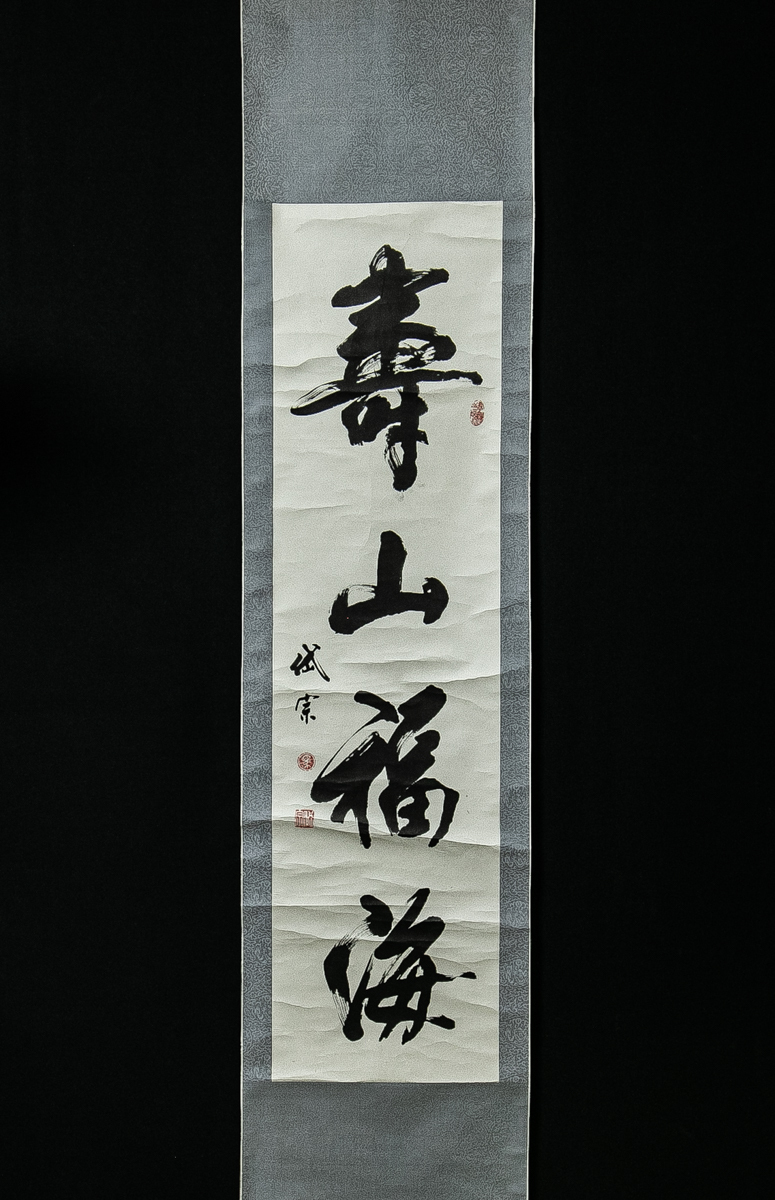 壽山福海
岱宗